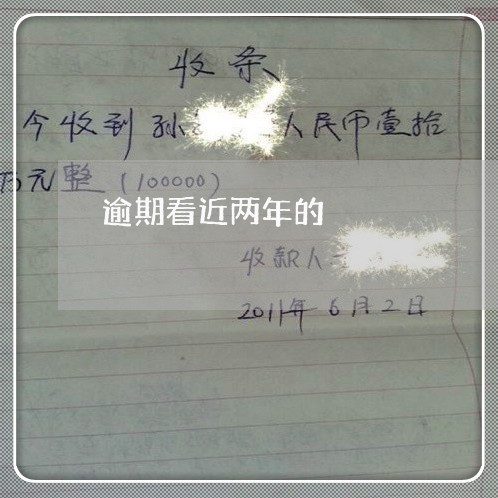 收条
今收到孙 人民币壹拾
万元整(100000)
逾期看近两年的
收款人
2011年6月2日